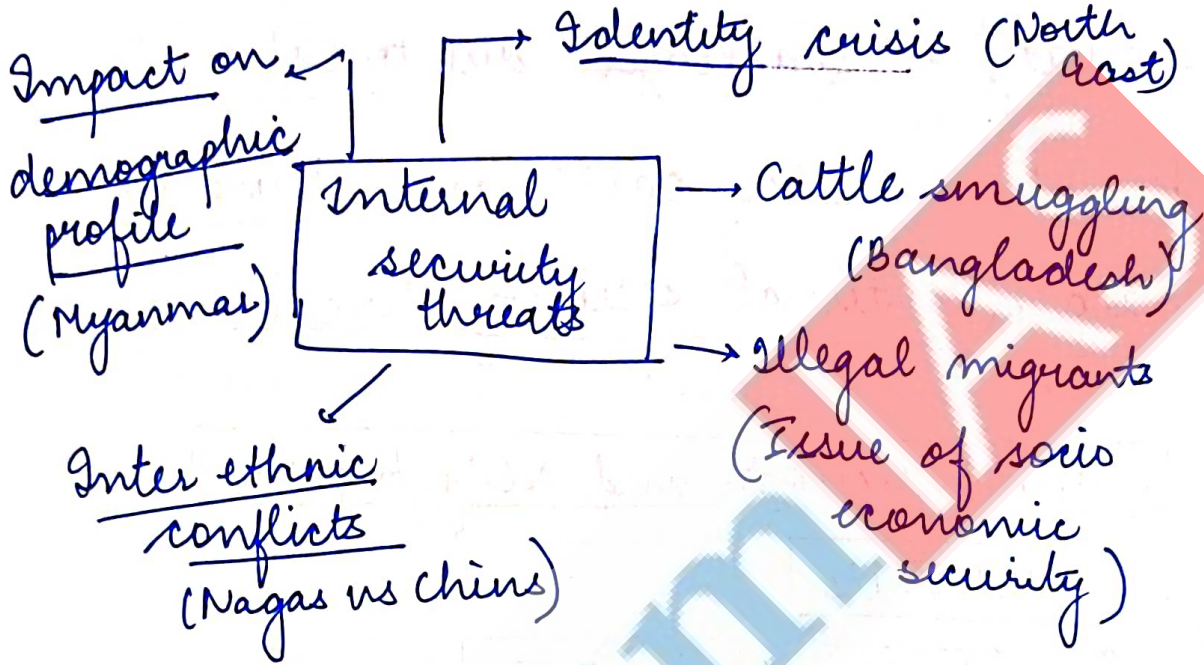 Impact on
demographic
profile
(Myanmar)
Identity crisis (North
East)
Internal
security
threats
Cattle smuggling
(Bangladesh)
Illegal migrants
(Issue of socio
economic
security)
Inter ethnic
conflicts
(Nagas vs Chins)
IAS
m